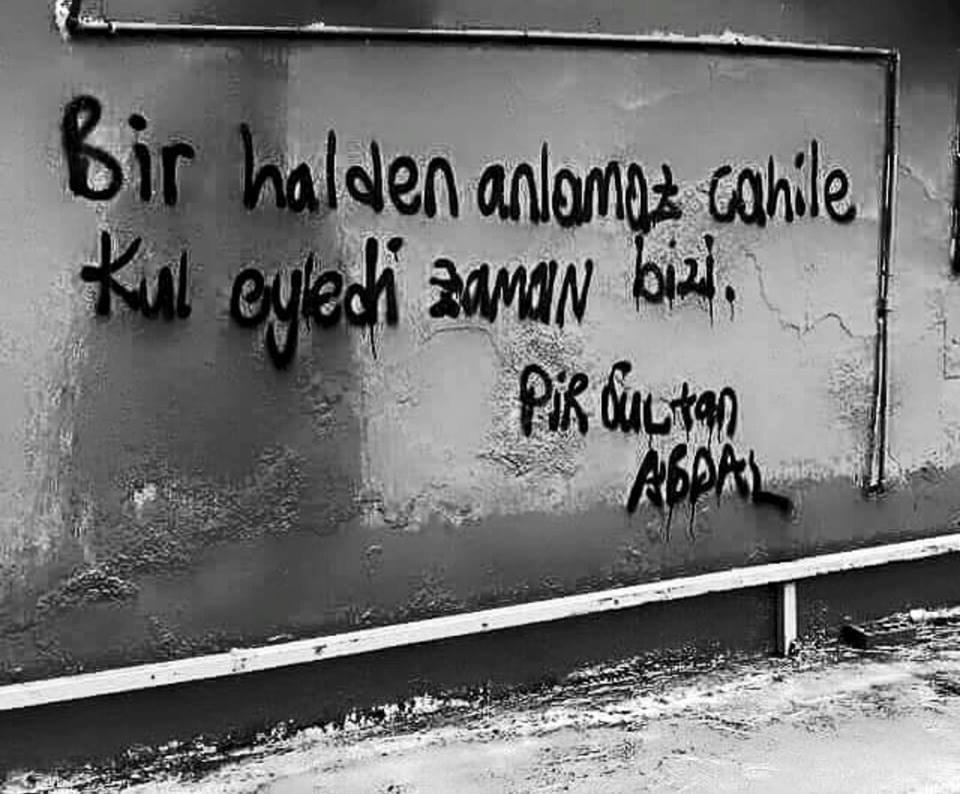 Bir halden anlamaz cahile
Kul eyledi zaman bizi.
PiR Sultan
ABDAL